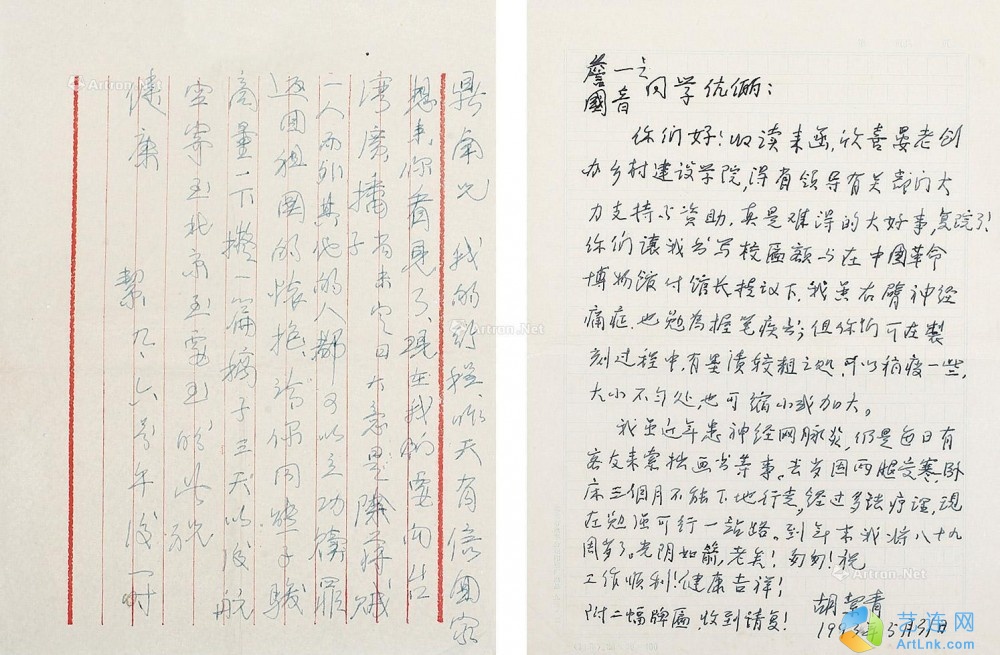 鼎甫兄 我的行程昨天有信国家
想来你看见了现在我们要向台
湾广播有未定日大意是除蒋贼
子
一人而外其他的人都可以立功赎罪
返回祖国的怀抱请你同
商量一下拟一篇稿子三天以后航
空寄至北京至要至 此
祝
健康
絜 九、六号午后一时
詹一之
国音 同学伉俪:
你们好!收读来函,欣喜晏老创
办乡村建设学院,得有领导有关部门大
力支持与资助,真是难得的大好事,复院了!
你们让我书写校匾额与在中国革命
博物馆付馆长提议下,我虽右臂神经
痛症,也勉为握笔疾书;但你们可在制
刻过程中,有墨渍较粗之处,可以稍瘦一些,
大小不匀处,也可缩小或加大。
我虽近年患神经网脉炎,仍是每日有
客友来索拙画书等事。去岁因两腿受寒,卧
床三个月不能下地行走,经过多法疗理,现
在勉强可行一站路。到年末我将八十九
周岁了。光阴如箭,老矣!匆匆!祝
工作顺利!健康吉祥!
胡絜青
附二幅牌匾,收到请复! 1993年5月31日
Artron.Net
艺连网
ArtLnk.com